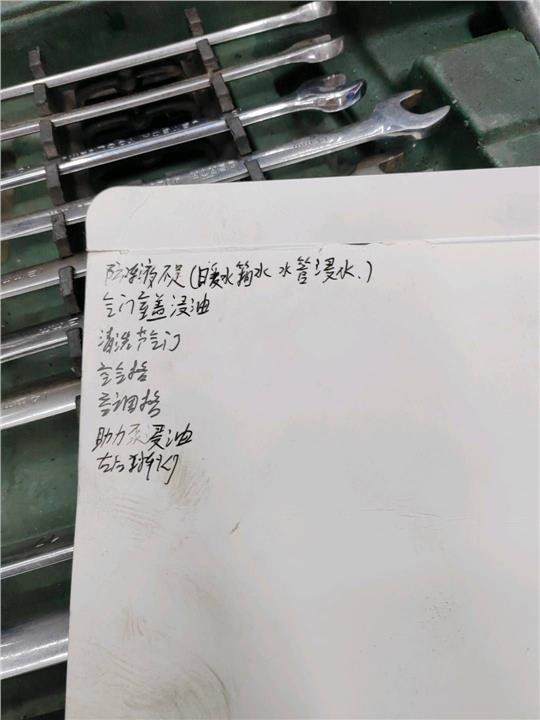 防冻液不足(暖水箱水 水管浸水.)
气门室盖浸油
清洗节气门
空气格
空调格
助力泵浸油
左右球